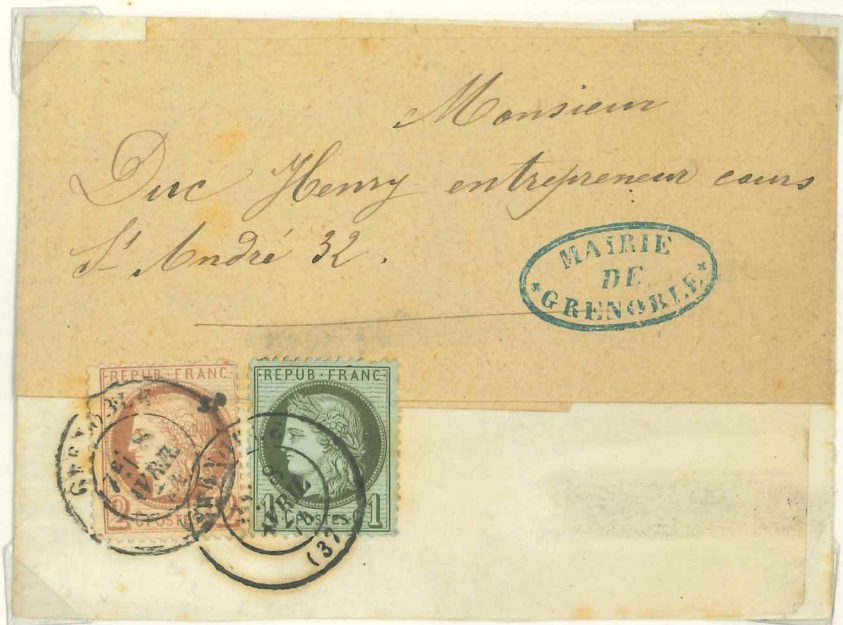 Monsieur
Duc Henry entrepreneur cours
St André 32.
MAIRIE
DE
GRENOBLE
REPUB·FRANC
2 POSTES 2
REPUB·FRANC
1 POSTES 1
GRENOBLE
8
AVRIL
GRENOBLE
8
AVRIL
(37)